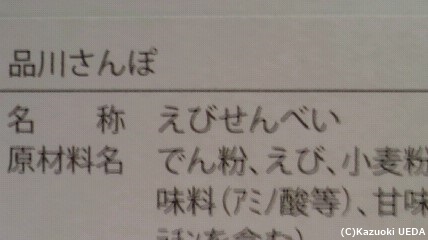 品川さんぽ
名　　称　えびせんべい
原材料名　でん粉、えび、小麦粉
味料（アミノ酸等）、甘味
(C)Kazuoki UEDA